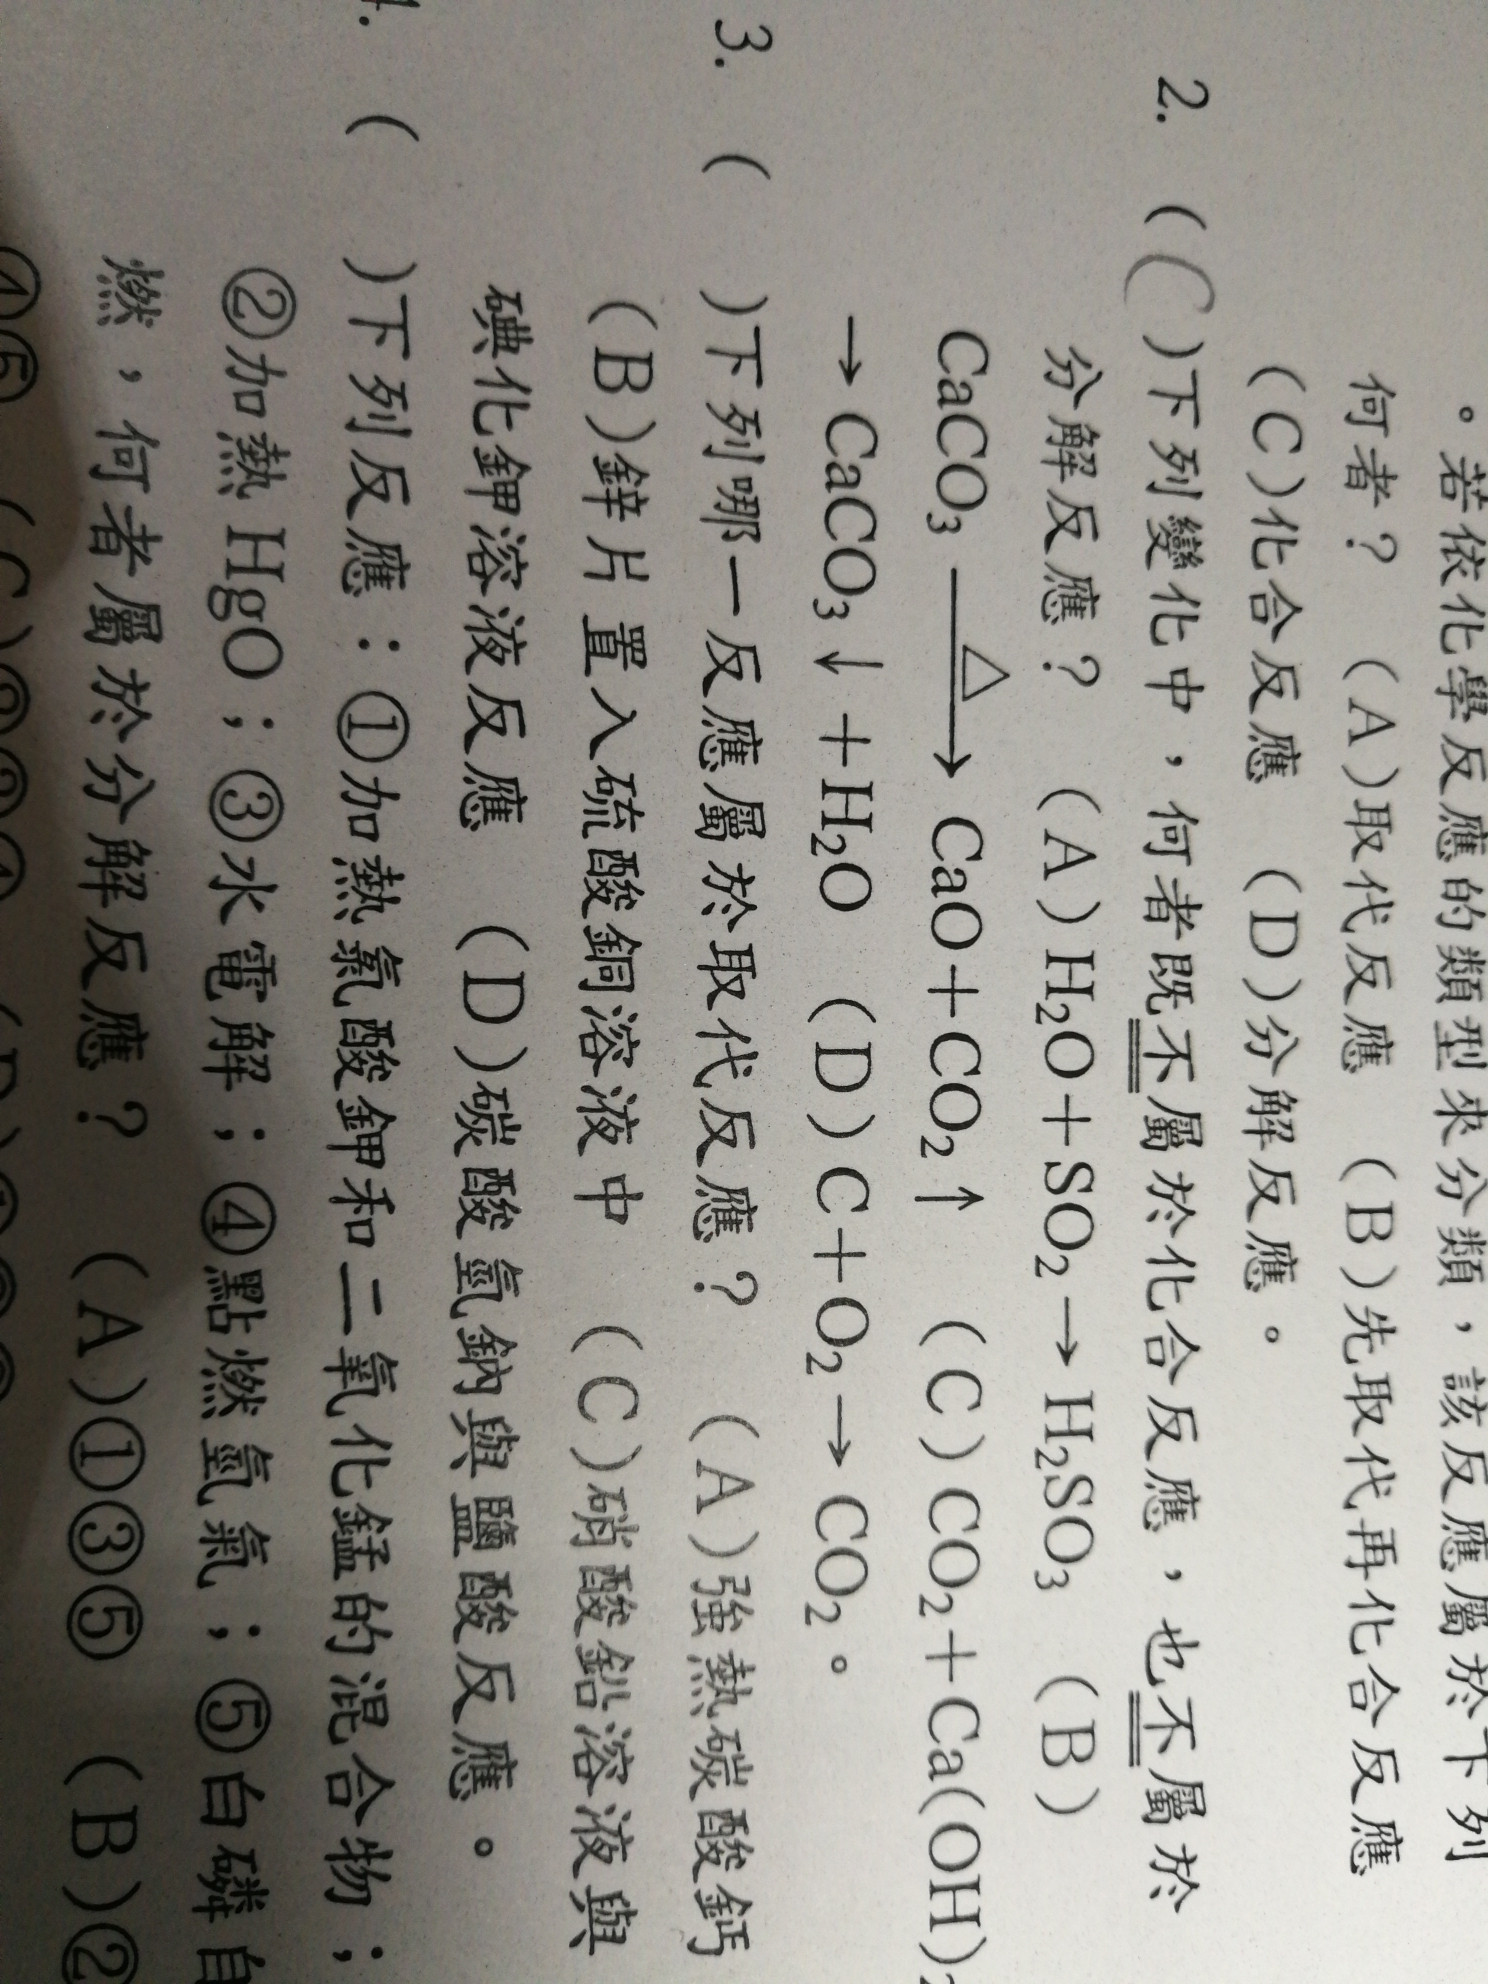 。若依化學反應的類型來分類，該反應屬於下列
何者？ (A)取代反應 (B)先取代再化合反應
(C)化合反應 (D)分解反應。
2. (C)下列變化中，何者既不屬於化合反應，也不屬於
分解反應？ (A)H₂O＋SO₂→H₂SO₃ (B)
CaCO₃ △→ CaO＋CO₂↑ (C)CO₂＋Ca(OH)₂
→CaCO₃↓＋H₂O (D)C＋O₂→CO₂。
3. ( )下列哪一反應屬於取代反應？ (A)強熱碳酸鈣
(B)鋅片置入硫酸銅溶液中 (C)硝酸鉛溶液與
碘化鉀溶液反應 (D)碳酸氫鈉與鹽酸反應。
( )下列反應：①加熱氯酸鉀和二氧化錳的混合物；
②加熱 HgO；③水電解；④點燃氫氣；⑤白磷自
燃，何者屬於分解反應？ (A)①③⑤ (B)②
④⑤